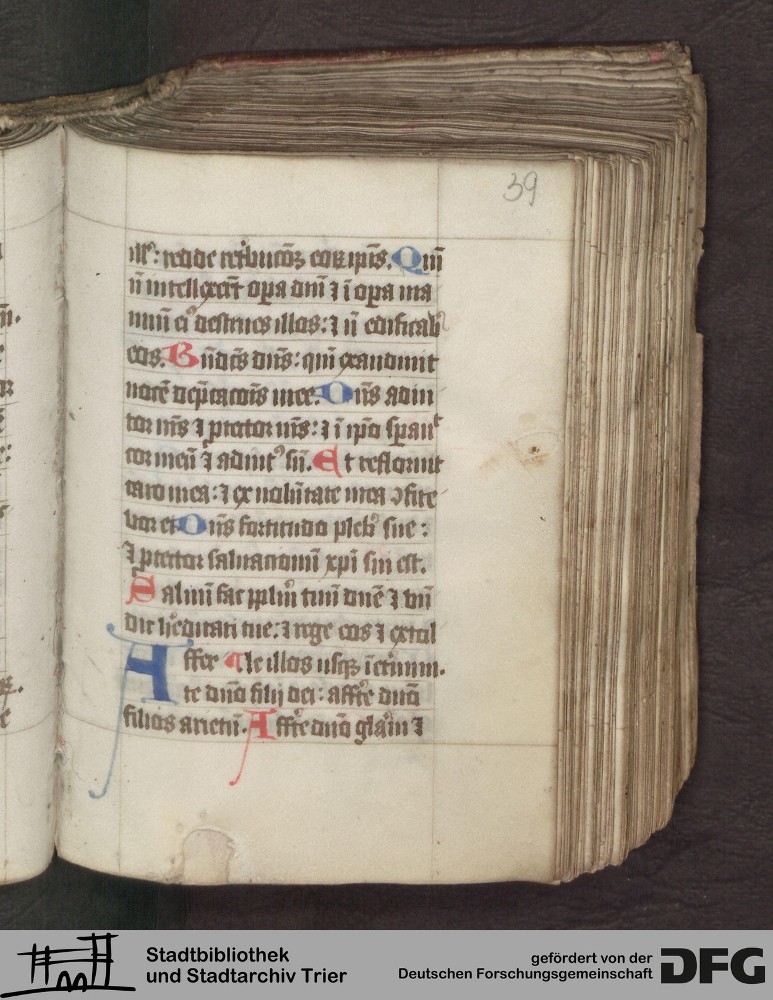 39
ill᷒: redde ret͛bucōꝫ eoꝝ ip̄is. Qm̄
nō intellexer̄t oꝑa dn̄i ⁊ ī oꝑa ma
nuū ei᷒ destrues illos: ⁊ nō edificab̓
eos. Bn̄dc̄s dn̄s: qm̄ exaudiuit
uocē dep̄cacōis mee. Dn̄s adiu
tor m̄s ⁊ ꝓtector m̄s: ⁊ ī ip̄o sꝑauͭ
cor meū ⁊ adiut᷒ sū. Et refloruit
caro mea: ⁊ ex uolūtate mea ↄfite
bor ei Dn̄s fortitudo pleb̓ sue:
⁊ ꝓtector saluacionū xp̄i sui est.
Saluū fac pplm̄ tuū dn̄e ⁊ bn̄
dic h͛editati tue: ⁊ rege eos ⁊ extol
Affer le illos usqꝫ ī et͛num.
te dn̄o filij dei: affer̄te dn̄o
filios arietū. Affer̄te dn̄o glāim ⁊
Stadtbibliothek
und Stadtarchiv Trier
gefördert von der
Deutschen Forschungsgemeinschaft
DFG